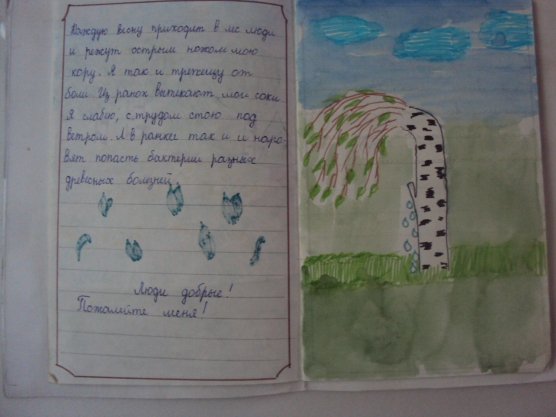 Каждую весну приходит в лес люди
и режут острым ножом мою
кору. Я так и трепещу от
боли. Из ранок вытекают мои соки.
Я слабею, с трудом стою под
ветром. А в ранки так и и норо-
вят попасть бактерии разных
древесных болезней.
Люди добрые!
Пожалейте меня!